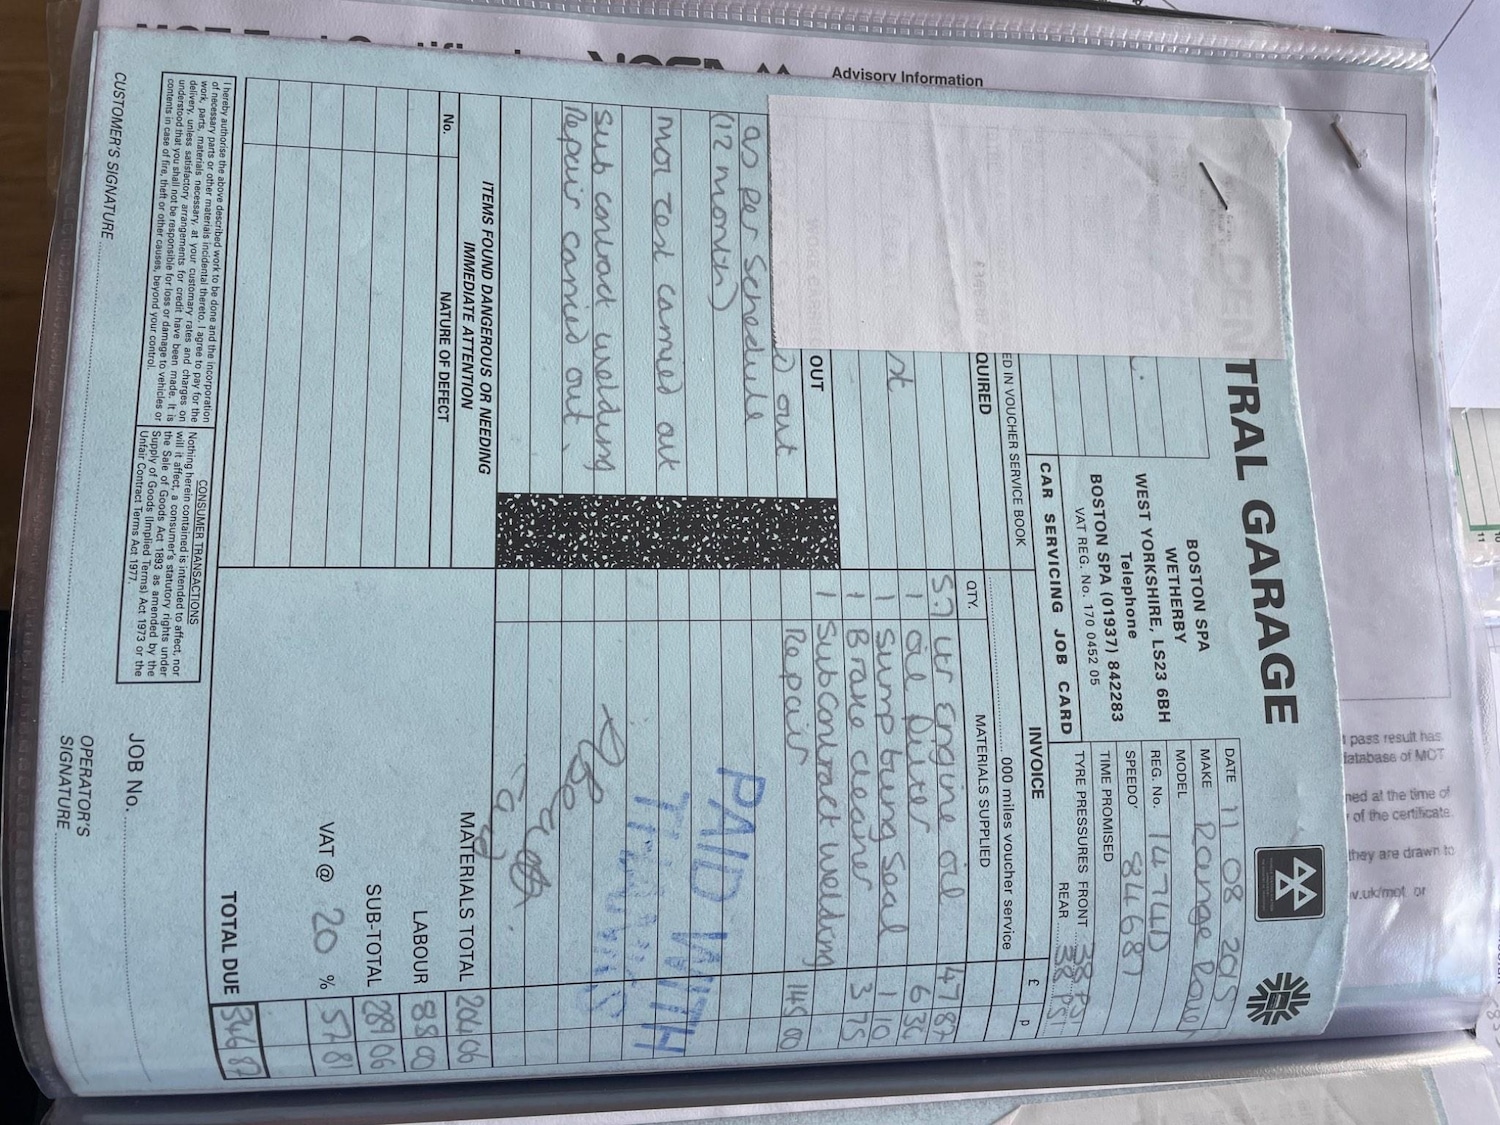 Advisory Information
TRAL GARAGE
BOSTON SPA
WETHERBY
WEST YORKSHIRE, LS23 6BH
Telephone
BOSTON SPA (01937) 842283
VAT REG. No. 170 0452 05
CAR SERVICING JOB CARD
DATE 11 08 2015
MAKE Range Rover
MODEL
REG. No. 1474D
SPEEDO' 84687
TIME PROMISED
TYRE PRESSURES FRONT 38 PSI
REAR 38 PSI
ED IN VOUCHER SERVICE BOOK
QUIRED
st
OUT
out
as per schedule
(12 month)
MOT test carried out
Sub contract welding
Repair carried out.
INVOICE
000 miles voucher service
£ p
QTY. MATERIALS SUPPLIED
5.7 Ltr Engine oil 47 87
1 oil filter 6 34
1 Sump bung Seal 1 10
1 Brake cleaner 3 75
1 Subcontract welding
Repair 145 00
PAID WITH
THANKS
MATERIALS TOTAL 204 06
LABOUR 85 00
SUB-TOTAL 289 06
VAT @ 20 % 57 81
TOTAL DUE 346 87
ITEMS FOUND DANGEROUS OR NEEDING
IMMEDIATE ATTENTION
No. NATURE OF DEFECT
I hereby authorise the above described work to be done and the incorporation
of necessary parts or other materials incidental thereto. I agree to pay for the
work, parts, materials necessary, at your customary rates and charges on
delivery, unless satisfactory arrangements for credit have been made. It is
understood that you shall not be responsible for loss or damage to vehicles or
contents in case of fire, theft or other causes, beyond your control.
CONSUMER TRANSACTIONS
Nothing herein contained is intended to affect, nor
will it affect, a consumer's statutory rights under
the Sale of Goods Act 1893 as amended by the
Supply of Goods (Implied Terms) Act 1973 or the
Unfair Contract Terms Act 1977.
JOB No.
CUSTOMER'S SIGNATURE
OPERATOR'S
SIGNATURE
pass result has
database of MOT
ned at the time of
of the certificate.
they are drawn to
v.uk/mot or